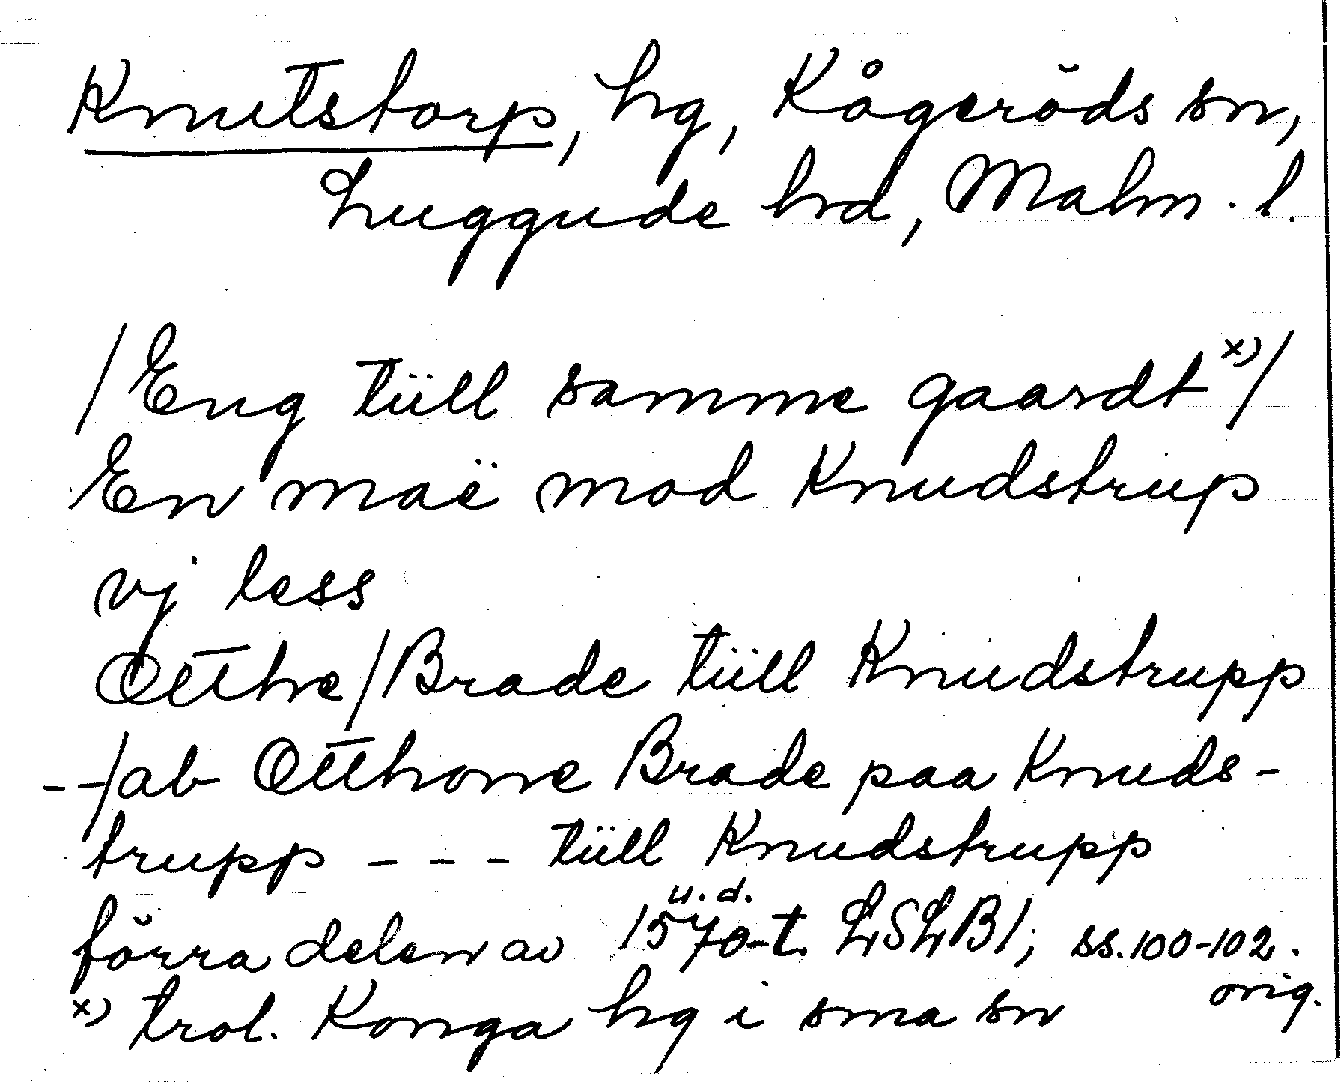 Knutstorp, hg, Kågeröds sn,
Luggude hd, Malm. l.
/Eng tüll samme gaardt x)/
En maë mod Knudstrup
vj less
Otthe/Brade tüll Knudstrupp
--/ab Otthone Brade paa Knuds-
trupp --- tüll Knudstrupp
u.d.
förra delen av 1570-t. LSLB1, ss.100-102.
orig.
x) trol. Konga hg i sma sn